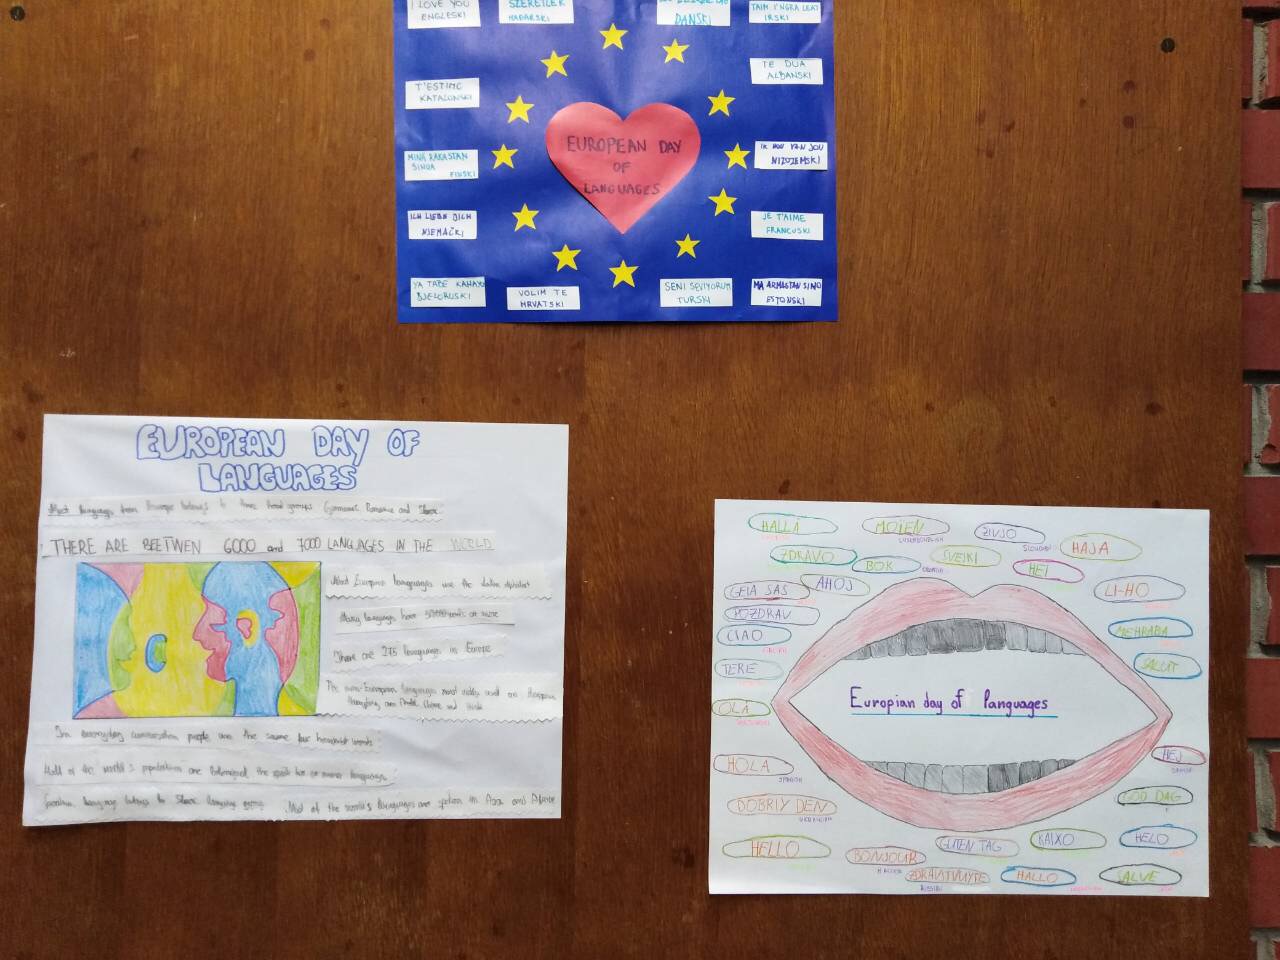 I LOVE YOU
ENGLESKI
SZERETLEK
MAĐARSKI
DANSKI
TAIM I'NGRA LEAT
IRSKI
T'ESTIMC
KATALONSKI
TE DUA
ALBANSKI
MINÄ RAKASTAN
SINUA
FINSKI
EUROPEAN DAY
OF
LANGUAGES
IK HOU VAN JOU
NIZOZEMSKI
ICH LIEBE DICH
NJEMAČKI
JE T'AIME
FRANCUSKI
YA TABE KAHAYU
BJELORUSKI
VOLIM TE
HRVATSKI
SENI SEVIYORUM
TURSKI
MA ARMASTAN SIND
ESTONSKI
EUROPEAN DAY OF
LANGUAGES
Most languages from Europe belongs to three broad groups Germanic Romance and Slavic
THERE ARE BEETWEN 6000 and 7000 LANGUAGES IN THE WORLD
Most European languages use the latin alphabet
Many languages have 50000 words or more
There are 225 languages in Europe
The non-European languages most widely used on European
In everyday conversation people use the same few hundred words
Half of the world's population are
Most of the world's languages are spoken in Asia and Africa
HALLÅ
MOIEN
LUXEMBOURGISH
ŽIVJO
SLOVENIAN
HAJA
ZDRAVO
BOK
CROATIAN
SVEIKI
HEI
GEIA SAS
AHOJ
LI-HO
POZDRAV
MERHABA
CIAO
SALUT
TERE
OLÁ
Europian day of languages
HOLA
SPANISH
HEJ
DANISH
DOBRIY DEN
UKRAINIAN
GOD DAG
HELLO
BONJOUR
GUTEN TAG
KAIXO
HELO
ZDRAVSTVUYTE
RUSSIAN
HALLO
SALVE